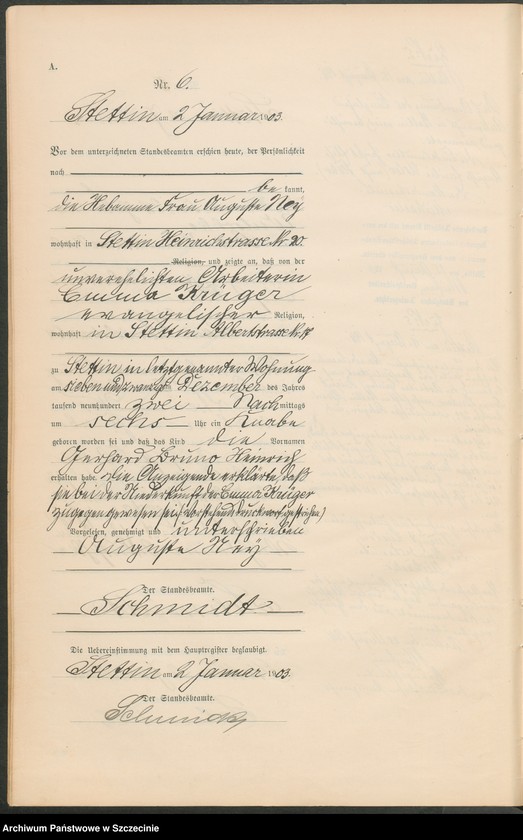 A.
Nr. 6.
Stettin am 2 Januar 1903.
Vor dem unterzeichneten Standesbeamten erschien heute, der Persönlichkeit
nach
be kannt,
die Hebamme Frau Auguste Ney
wohnhaft in Stettin Heinrichstrasse Nr 20.
Religion, und zeigte an, daß von der
unverehelichten Arbeiterin
Emma Krüger
evangelischer Religion,
wohnhaft in Stettin Albertstrasse Nr
zu Stettin in letztgenannter Wohnung
am siebenundzwanzigsten Dezember des Jahres
tausend neunhundert zwei Nach mittags
um sechs Uhr ein Knabe
geboren worden sei und daß das Kind die Vornamen
Gerhard Bruno Heinrich
erhalten habe. Die Anzeigende erklärte, daß
sie bei der Niederkunft der Emma Krüger
zugegen gewesen sei (Vorstehend Druckwort gestrichen)
Vorgelesen, genehmigt und unterschrieben
Auguste Ney
Der Standesbeamte.
Schmidt
Die Uebereinstimmung mit dem Hauptregister beglaubigt.
Stettin am 2 Januar 1903.
Der Standesbeamte.
Archiwum Państwowe w Szczecinie